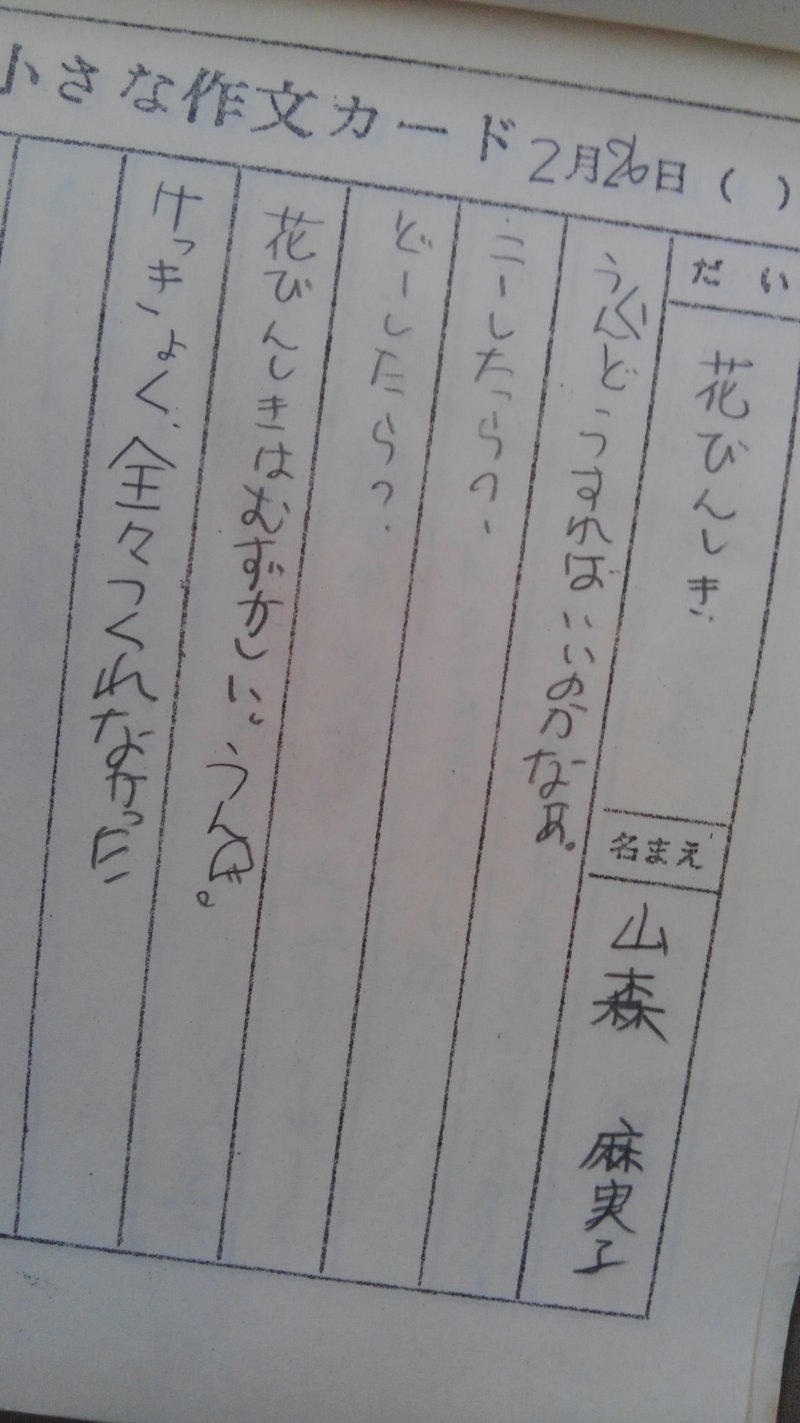 小さな作文カード 2月26日( )
だい 花びんしき
名まえ 山森 麻実子
うんどうすればいいのかなぁ。
こーしたら?
どーしたら?
花びんしきはむずかしい。うん。
けっきょく、全々つくれなかった